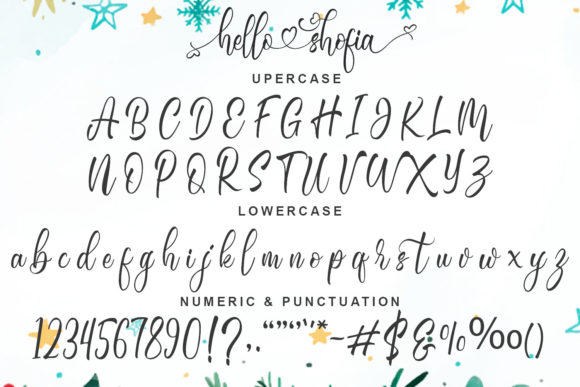 hello shofia
UPERCASE
ABCDEFGHIJKLM
NOPQRSTUVWXYZ
LOWERCASE
abcdefghijklmnopqrstuvwxyz
NUMERIC & PUNCTUATION
1234567890!?,.“”‘’"*~#$&%‰()